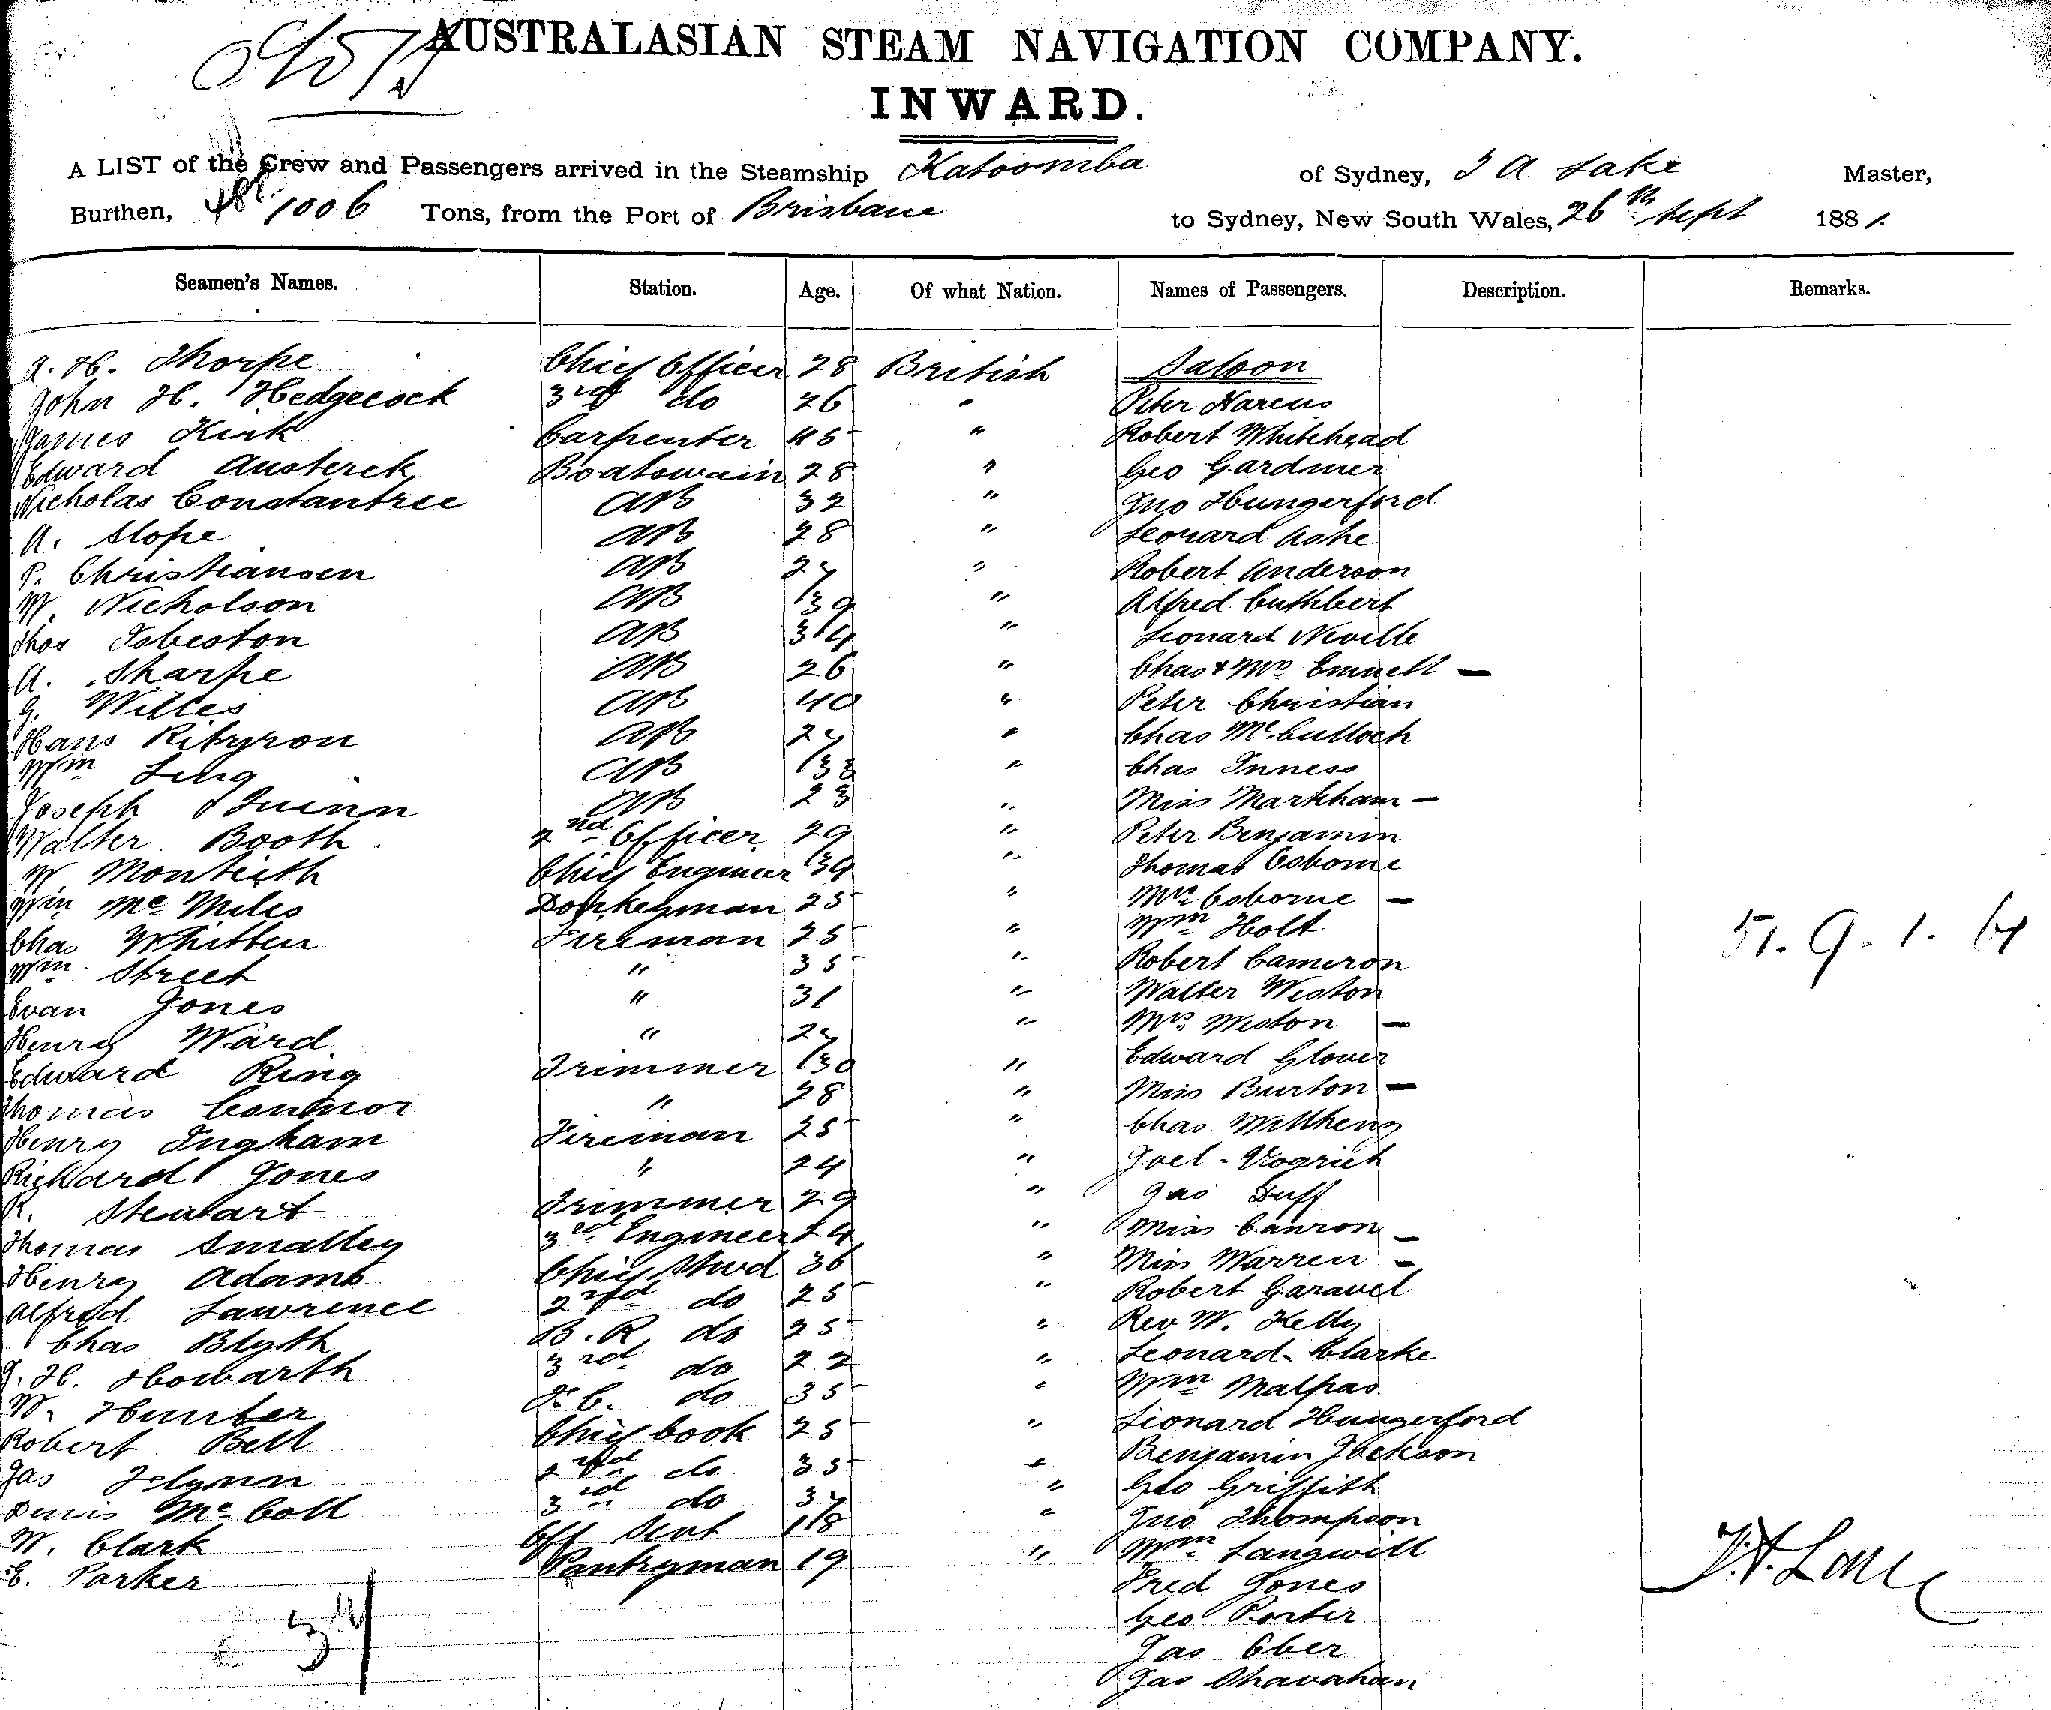 AUSTRALASIAN STEAM NAVIGATION COMPANY.
INWARD.
A LIST of the Crew and Passengers arrived in the Steamship Katoomba of Sydney, J A Lake Master,
Burthen, 1006 Tons, from the Port of Brisbane to Sydney, New South Wales, 26th Sept 1881.
Seamen's Names. Station. Age. Of what Nation. Names of Passengers. Description. Remarks.
H. Thorpe Chief Officer 28 British Saloon
John H. Hedgecock 3rd do 26 " Peter Narcus
James Kirk Carpenter 45 " Robert Whitehead
Edward Austerck Boatswain 28 " Geo Gardiner
Nicholas Constantree AB 32 " Jno Hungerford
A. Slope AB 28 " Leonard Ashe
P. Christiansen AB 27 " Robert Anderson
W. Nicholson AB 39 " Alfred Cuthbert
Thos Tobeston AB 34 " Leonard Neville
A. Sharpe AB 26 " Chas & Mrs Emmett —
G. Willes AB 40 " Peter Christian
Hans AB 27 " Chas McCulloch
Wm Ling AB 33 " Chas Inness
Joseph Quinn AB 23 " Miss Markham —
Walter Booth 2nd Officer 29 " Peter Benjamin
W Monteith Chief Engineer 39 " Thomas Osborne
Wm McMiles Donkeyman 25 " Mrs Osborne —
Chas Whitten Fireman 25 " Wm Holt
Wm Street " 35 " Robert Cameron
Evan Jones " 31 " Walter Weston
Henry Ward " 27 " Mrs Weston —
Edward Ring Trimmer 30 " Edward Glover
Thomas Connor " 28 " Miss Burton —
Henry Ingham Fireman 25 " Chas
Richard Jones " 24 " Joel
R. Stewart Trimmer 29 " Jas Duff
Thomas Smalley 3rd Engineer 24 " Miss Canron —
Henry Adams Chief Stwd 36 " Miss Warren —
Alfred Lawrence 2nd do 25 " Robert Garavel
Chas Blyth B. R. do 25 " Rev W. Kelly
J. H. Howarth 3rd do 22 " Leonard Clarke
W. Hunter F. C. do 35 " Wm Malpas
Robert Bell Chief Cook 25 " Leonard Hungerford
Jas Flynn 2nd do 35 " Benjamin Jackson
Denis McColl 3rd do 37 " Geo Griffith
W. Clark Off Servt 18 " Jno Thompson
E. Parker Pantryman 19 " Wm Langwill
Fred Jones
Geo Porter
Jas Ober
Jas Shanahan
51. 9. 1.
37